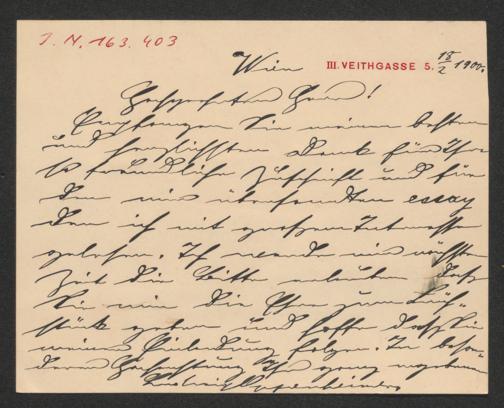 J. N. 163.403
Wien III. VEITHGASSE 5. 18/2 1900.
Hochgeehrter Herr!
Empfangen Sie meinen besten
und herzlichsten Dank für Ihre
so freundliche Zuschrift und für
den mir übersandten essay
den ich mit großem Interesse
gelesen. Ich werde mir nächster
Zeit die Bitte erlauben daß
Sie mir die Ehre zum Früh-
stück geben und hoffe daß Sie
meiner Einladung folgen. In beson-
derer Hochachtung Ihr ganz ergebener